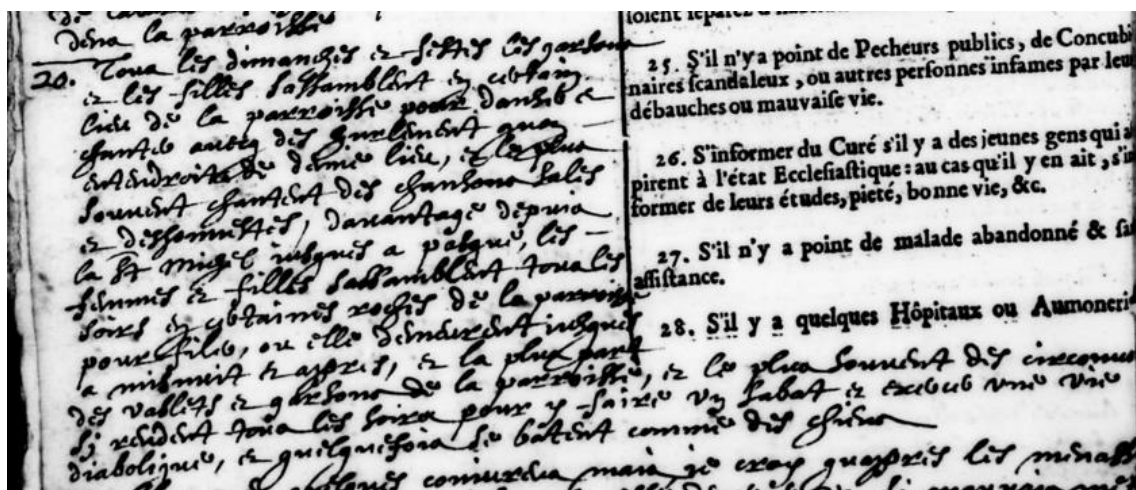 dena la parroisse
20. Tous les dimanches et festes les garsons
et les filles sassamblent en certain
lieu de la parroisse pour danser et
chanter avecq des hurlement quon
entendroit de demie lieu, et le plus
souvent chantent des chansons sales
et deshonnestes, davantage depuis
la St Michel jusques a pasque, les
femmes et filles sassamblent tous les
soirs en certaines roches de la parroisse
pour filer, ou elle demeurent jusques
a minuit et apres, et la plus part
des vallets et garsons de la parroisse, et le plus souvent des circonv
sy rendent tous les soirs pour y faire un sabat et exercer une vie
diabolique, et quelquefois se batent comme des chiens
conjureurs mais je croy quapres les menass
25. S'il n'y a point de Pecheurs publics, de Concubi
naires scandaleux, ou autres personnes infames par leu
débauches ou mauvaise vie.
26. S'informer du Curé s'il y a des jeunes gens qui a
pirent à l'état Ecclesiastique : au cas qu'il y en ait, s'in
former de leurs études, pieté, bonne vie, &c.
27. S'il n'y a point de malade abandonné & sa
assistance.
28. S'il y a quelques Hôpitaux ou Aumoneri